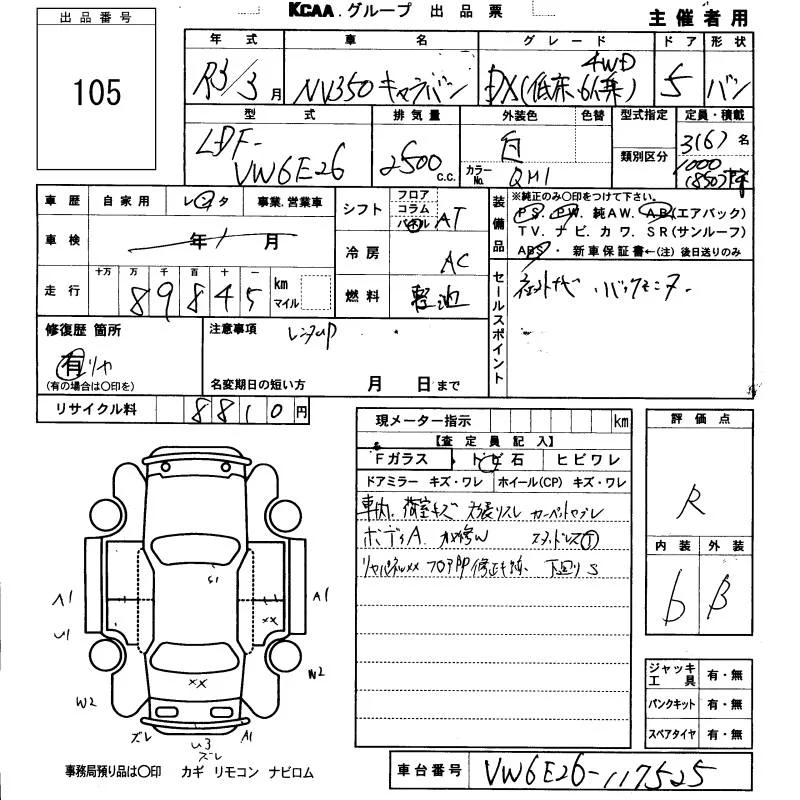 KCAA.グループ 出品票
主催者用
出品番号
105
年式
車名
グレード
ドア
形状
R3/3月
NV350 キャラバン
DX(低床、6人乗) 4WD
5
バン
型式
排気量
外装色
色替
型式指定
定員・積載
LDF-
VW6E26
2500 c.c.
白
カラーNo.
QM1
類別区分
3(6)名
1000
(850)
車歴
自家用
レンタ
事業、営業車
シフト
フロア
コラム
パネル
AT
装備品
※純正のみ〇印をつけて下さい。
PS. PW. 純AW. AB(エアバック)
TV. ナビ. カワ. SR(サンルーフ)
ABS・ 新車保証書←(注) 後日送りのみ
車検
年 月
冷房
AC
走行
十万 万 千 百 十 一
89845
km
マイル
燃料
軽油
セールスポイント
バックモニター
修復歴 箇所
有 リヤ
(有の場合は〇印を)
注意事項
レンタUP
名変期日の短い方
月 日まで
リサイクル料
8810円
現メーター指示
km
【査定員記入】
Fガラス
トビ石
ヒビワレ
ドアミラー キズ・ワレ
ホイール(CP) キズ・ワレ
車内、荷室キズ 天張リスレ カーペットヤブレ
ボディA
スタッドレス
リヤパネルXX フロアPP修正キ跡、下回りS
評価点
R
内装
外装
b
B
ジャッキ工具
有・無
パンクキット
有・無
スペアタイヤ
有・無
S1
A1
U1
A1
XX
W2
W2
XX
ズレ
U3
ズレ
A1
事務局預り品は〇印 カギ リモコン ナビロム
車台番号
VW6E26-117525